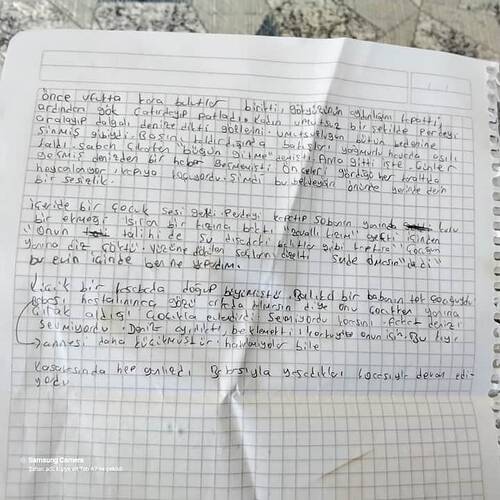 Önce ufukta kara bulutlar birikti. gökyüzünün aydınlığını kapattı
ardından gök çatırdayıp patladı. Kadın umutsuz bir şekilde perdeyi
aralayıp dalgalı denize dikti gözlerini. Umutsuzluğun bütün bedenine
sinmiş gibiydi. Başını kaldırdığında bakışları yağmurlu havada asılı
kaldı. Sabah çıkarken "bugün gitme" demişti. Ama gitti işte. Günler
geçmiş denizden bir haber gelmemişti. Önceleri gördüğü her karaltıda
heyecanlanıyor, kapıya koşuyordu. Şimdi bu bekleyişin önünde yerinde derin
bir sessizlik.
İçeride bir çocuk sesi geldi. Perdeyi kapatıp sobanın yanında kuru
bir ekmeği ısıran bir kızına baktı "zavallı kızım" geçti içinden
"Onun talihi de şu dışardaki bulutlar gibi kapkara" çocuğun
yanına diz çöktü. Yüzüne dökülen saçlarını düzeltti sende olmasan
bu evin içinde ben ne yapardım.
Küçük bir kasabada doğup büyümüştü. Balıkçı bir babanın tek çocuğuydu
Babası hastalanınca gözü arkada kalmasın diye onu çocukken yanına
çırak aldığı çocukla evlendirdi. Seviyordu kocasını. Fakat denizi
sevmiyordu. Deniz ayrılıktı, beklemekti korkuydu onun için. Bu
annesi daha küçükmüştür. hatırlamıyor bile
Kasabasında hep Babasıyla yaşadıkları kocasıyla devam edi-
yordu
Samsung Camera